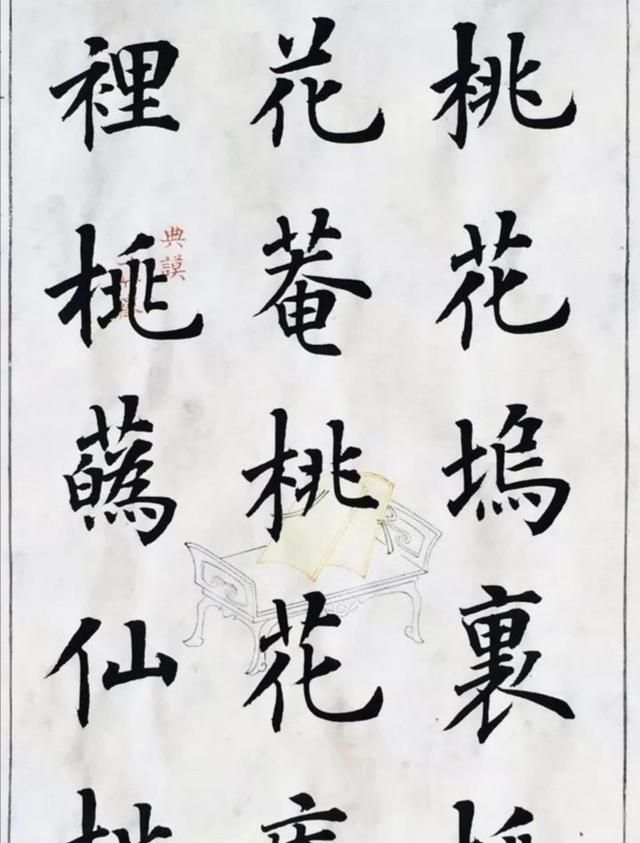 桃花塢裏
花菴桃花
裡桃蘤仙
典謨